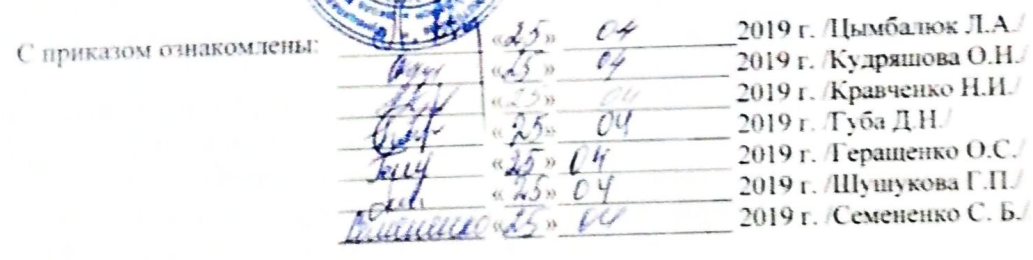 С приказом ознакомлены: «25» 04 2019 г. /Цымбалюк Л.А./
«25» 04 2019 г. /Кудряшова О.Н./
«25» 04 2019 г. /Кравченко Н.И./
«25» 04 2019 г. /Губа Д.Н./
«25» 04 2019 г. /Геращенко О.С./
«25» 04 2019 г. /Шушукова Г.П./
«25» 04 2019 г. /Семененко С. Б./